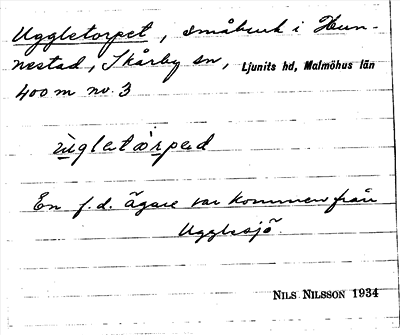 Uggletorpet, småbruk i Hun-
nestad, Skårby sn, Ljunits hd, Malmöhus län
400 m nv. 3
ùglatå̀rpəd
En f.d. ägare var kommen från
Ugglesjö.
NILS NILSSON 1934